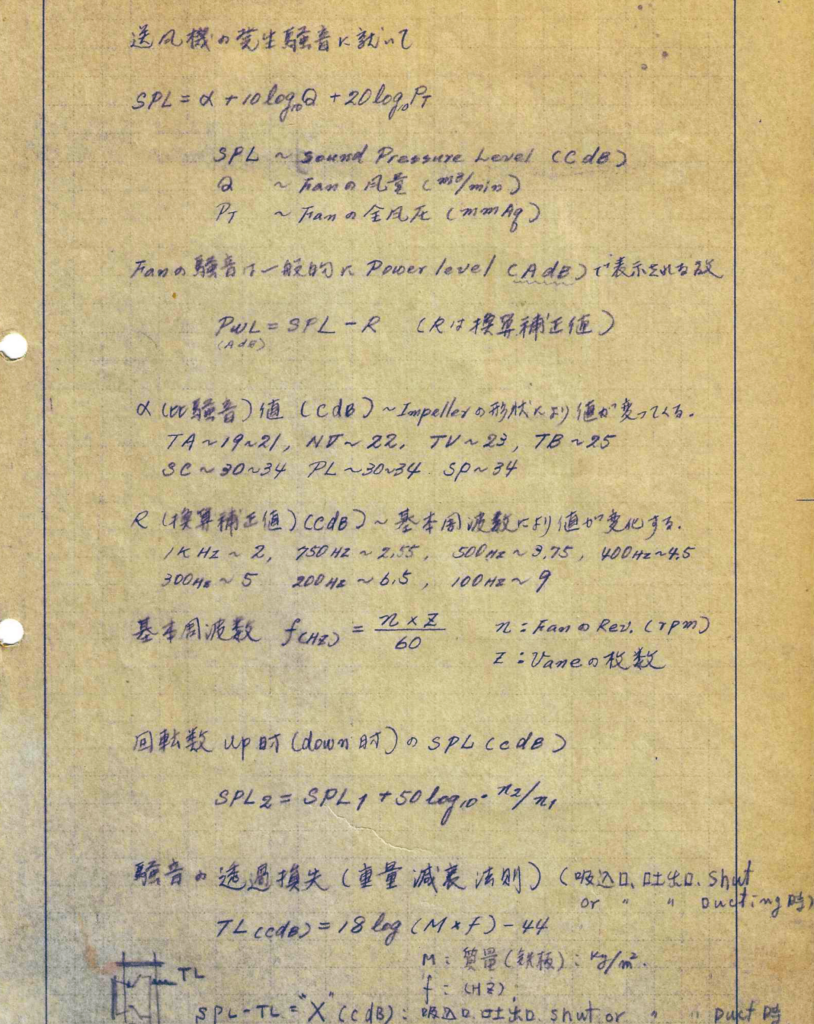 送风機の発生騒音に就いて
SPL = α + 10 log₁₀Q + 20 log₁₀P_T
SPL ~ Sound Pressure Level (C dB)
Q ~ Fanの风量 (m³/min)
P_T ~ Fanの全风圧 (mmAq)
Fanの騒音は一般的に Power level (A dB) で表示される故
PWL = SPL - R (Rは換算補正値)
(A dB)
α (比騒音) 値 (C dB) ~ Impellerの形状により値が変ってくる.
TA ~ 19~21, NV ~ 22, TV ~ 23, TB ~ 25
SC ~ 30~34 PL ~ 30~34 SP ~ 34
R (換算補正値) (C dB) ~ 基本周波数により値が変化する.
1K HZ ~ 2, 750 HZ ~ 2.55, 500 HZ ~ 3.75, 400 HZ ~ 4.5
300 HZ ~ 5 200 HZ ~ 6.5, 100 HZ ~ 9
基本周波数 f(HZ) = n × Z / 60 n : Fanの Rev. (rpm)
Z : Vaneの枚数
回転数 up 时 (down 时) の SPL (C dB)
SPL₂ = SPL₁ + 50 log₁₀・n₂/n₁
騒音の透過損失 (重量減衰法則) (吸込口、吐出口. Shut
or 〃 〃 Ducting 時)
TL (C dB) = 18 log (M × f) - 44
M : 質量 (鉄板) : kg/m².
TL f : (HZ) :
SPL - TL = "X" (C dB) : 吸込口. 吐出口. shut or 〃 〃 Duct 時